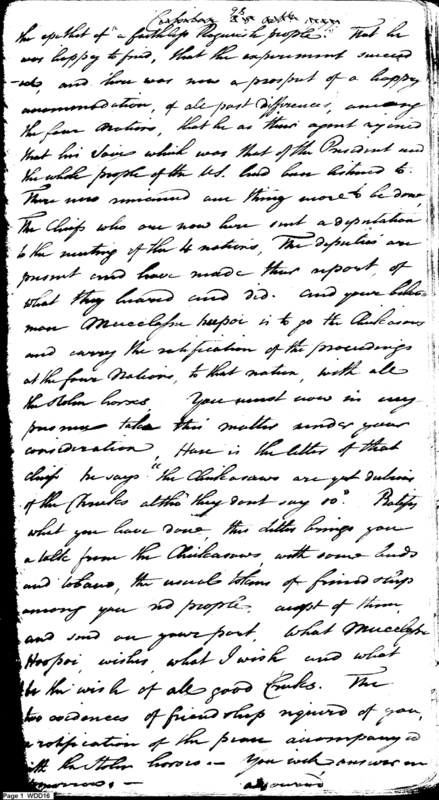 the epithet of "a faithless Roguish people." That he
was happy to find, that the experiment succeed
-ed, and there was now a prospect of a happy
accommodation, of all past differences, among
the four Nations, that he as their agent rejoiced
that his voice which was that of the President and
the whole people of the U.S. had been listened to.
There now remained one thing more to be done,
The Chiefs who are now here sent a deputation
to the meeting of the 4 nations, The deputies are
present and have made their report, of
what they heard and did. And your
man Mucclasse hoopoi is to go the Chickasaws
and carry the ratification of the proceedings
at the four Nations, to that nation, with all
the stolen horses. You must now in my
presence take this matter under your
consideration, Here is the letter of that
chief he says "the Chickasaws are yet dubious
of the Creeks altho' they dont say so". Ratify
what you have done, this letter brings you
a talk from the Chickasaws with some beads
and tobacco, the usual tokens of friendship
among you red people, accept of them,
and send on your part, what Mucclasse
Hoopoi, wishes, what I wish and what
be the wish of all good Creeks. The
two evidences of friendship required of you,
a ratification of the peace accompanyed
with the stolen horses — You will answer on
tomorrow. — adjourned
Page 1 WDD16